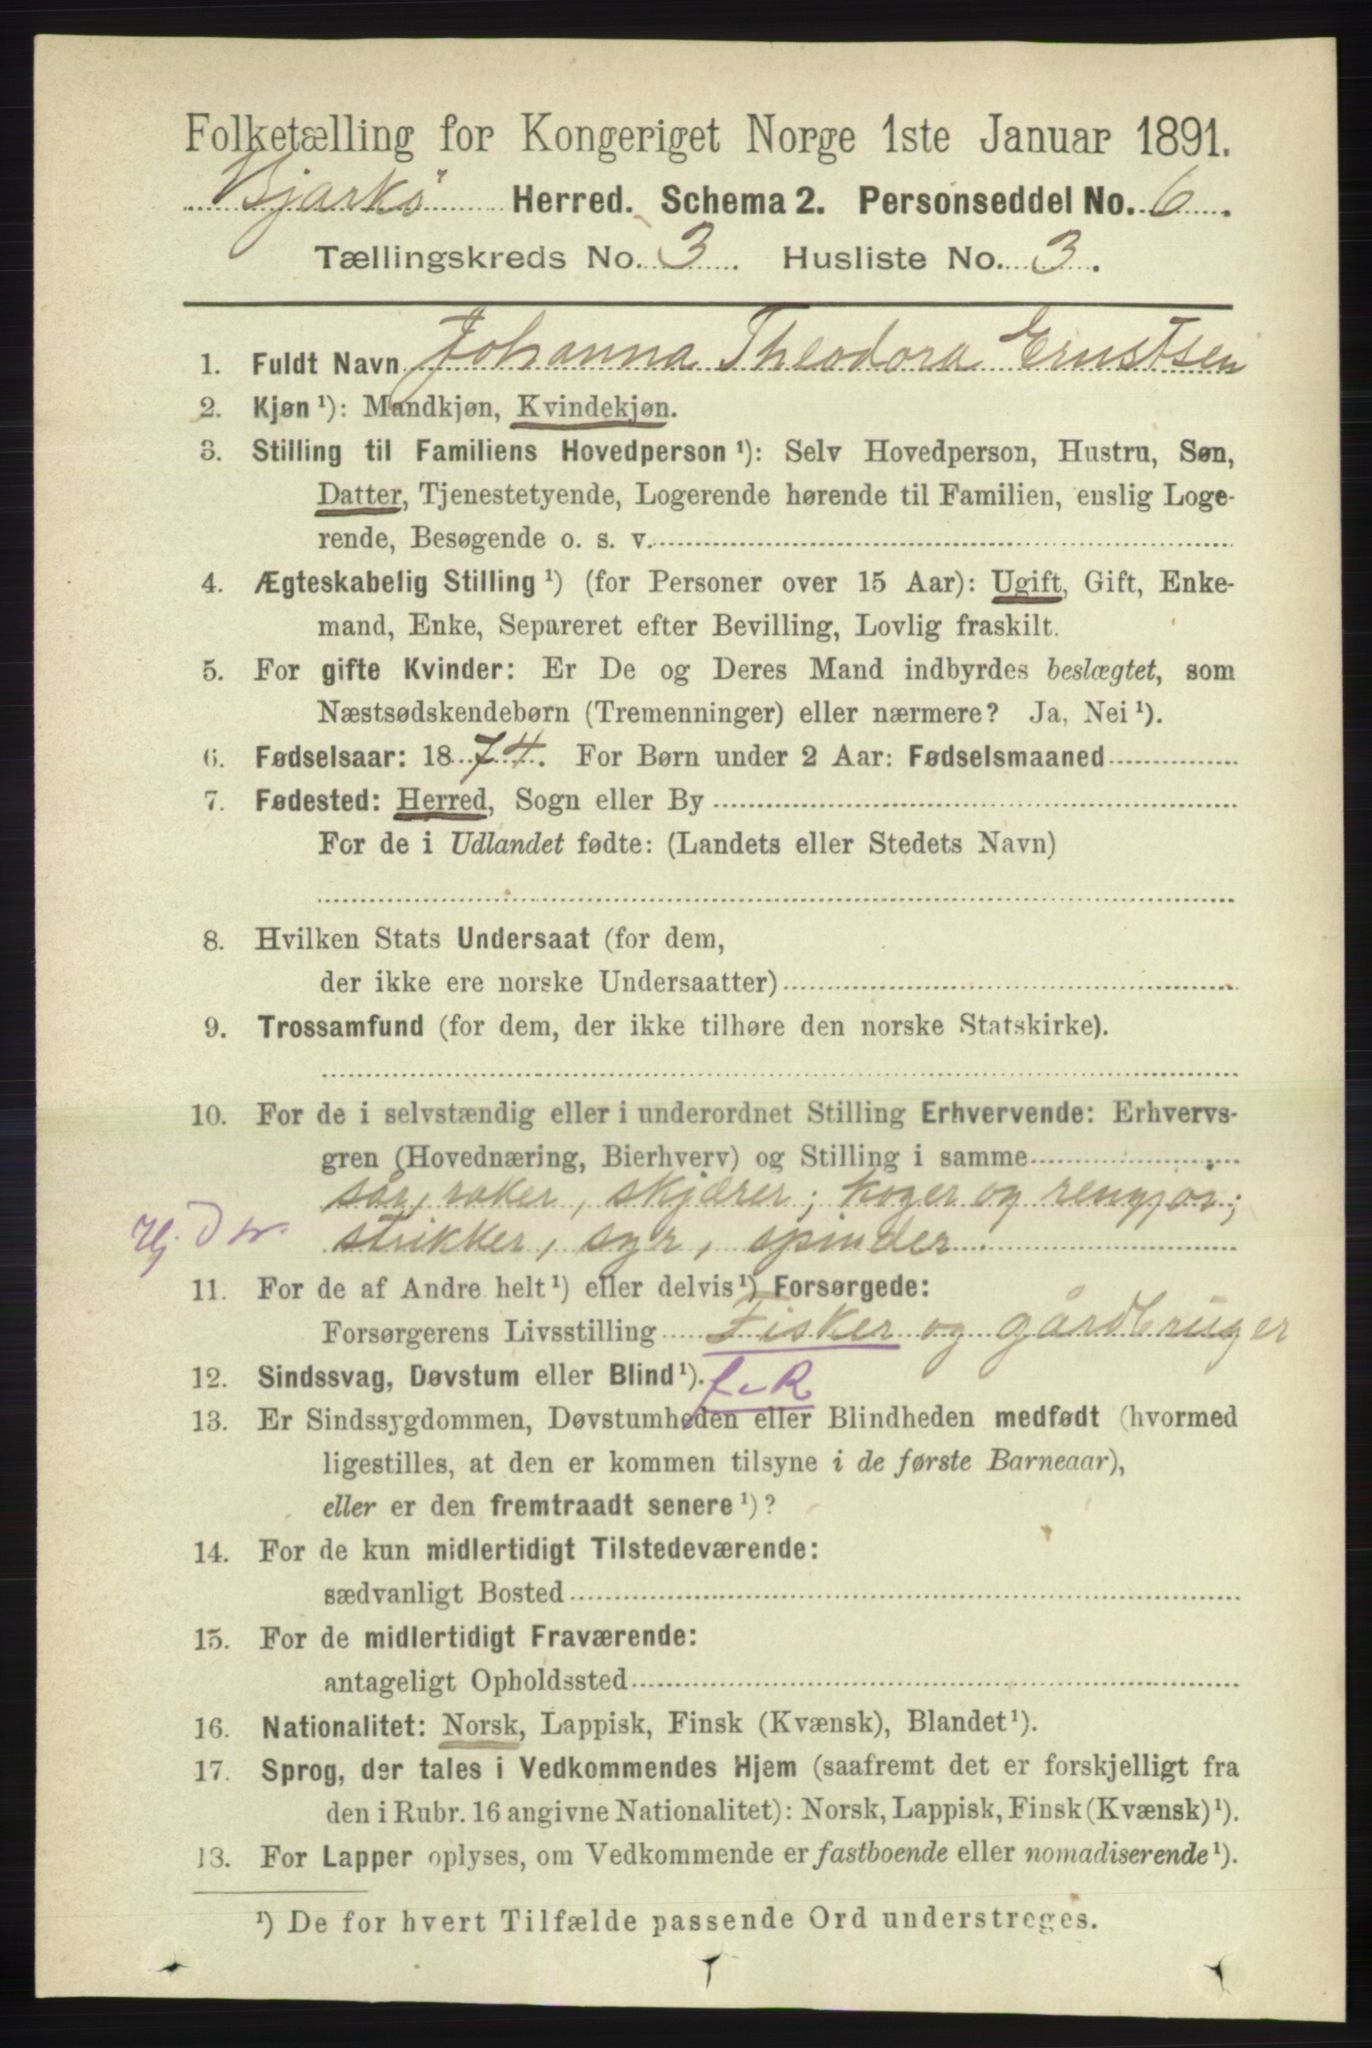 Folketælling for Kongeriget Norge 1ste Januar 1891.
Bjarkö Herred. Schema 2. Personseddel No. 6.
Tællingskreds No. 3. Husliste No. 3.
1. Fuldt Navn Johanna Theodora Ernstsen
2. Kjøn ¹): Mandkjøn, Kvindekjøn.
3. Stilling til Familiens Hovedperson ¹): Selv Hovedperson, Hustru, Søn,
Datter, Tjenestetyende, Logerende hørende til Familien, enslig Loge-
rende, Besøgende o. s. v.
4. Ægteskabelig Stilling ¹) (for Personer over 15 Aar): Ugift, Gift, Enke-
mand, Enke, Separeret efter Bevilling, Lovlig fraskilt.
5. For gifte Kvinder: Er De og Deres Mand indbyrdes beslægtet, som
Næstsødskendebørn (Tremenninger) eller nærmere? Ja, Nei ¹).
6. Fødselsaar: 1874. For Børn under 2 Aar: Fødselsmaaned
7. Fødested: Herred, Sogn eller By
For de i Udlandet fødte: (Landets eller Stedets Navn)
8. Hvilken Stats Undersaat (for dem,
der ikke ere norske Undersaatter)
9. Trossamfund (for dem, der ikke tilhøre den norske Statskirke).
10. For de i selvstændig eller i underordnet Stilling Erhvervende: Erhvervs-
gren (Hovednæring, Bierhverv) og Stilling i samme
sår, raker, skjærer; koger og rengjør;
strikker, syr, spinder
11. For de af Andre helt ¹) eller delvis ¹) Forsørgede:
Forsørgerens Livsstilling Fisker og gårdbruger
12. Sindssvag, Døvstum eller Blind ¹).
13. Er Sindssygdommen, Døvstumheden eller Blindheden medfødt (hvormed
ligestilles, at den er kommen tilsyne i de første Barneaar),
eller er den fremtraadt senere ¹)?
14. For de kun midlertidigt Tilstedeværende:
sædvanligt Bosted
15. For de midlertidigt Fraværende:
antageligt Opholdssted
16. Nationalitet: Norsk, Lappisk, Finsk (Kvænsk), Blandet ¹).
17. Sprog, der tales i Vedkommendes Hjem (saafremt det er forskjelligt fra
den i Rubr. 16 angivne Nationalitet): Norsk, Lappisk, Finsk (Kvænsk) ¹).
13. For Lapper oplyses, om Vedkommende er fastboende eller nomadiserende ¹).
¹) De for hvert Tilfælde passende Ord understreges.